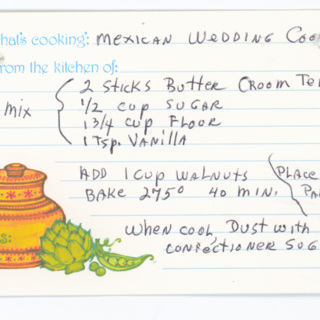 hat's cooking: MEXICAN WEDDING COO
rom the kitchen of:
2 STICKS BUTTER CROOM TE
MIX
1/2 CUP SUGAR
1 3/4 CUP FLOOR
1 TSP. VANILLA
ADD 1 CUP WALNUTS
PLACE
BAKE 275° 40 MIN.
PA
WHEN COOL, DUST WITH
CONFECTIONER SUG
s: